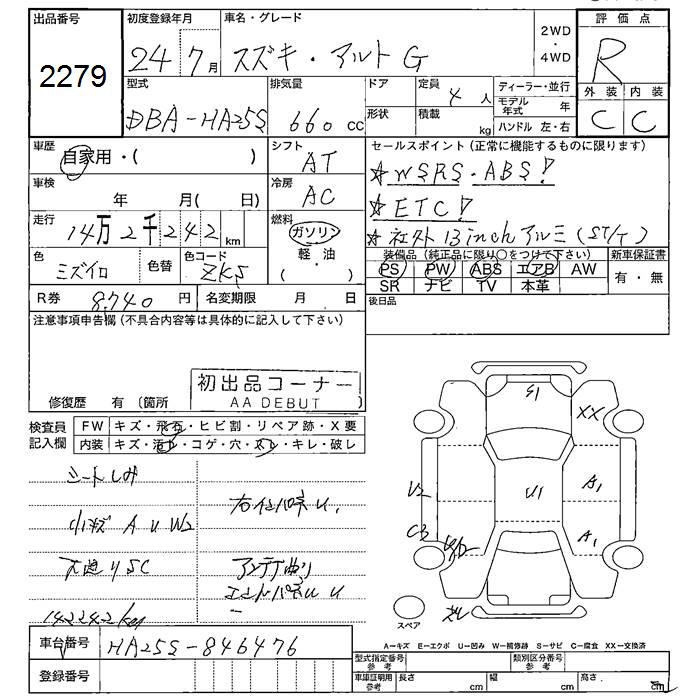 出品番号 初度登録年月 車名・グレード 2WD ・ 4WD 評価点
2279 24 7月 スズキ・アルト G R
型式 排気量 ドア 定員 4人 ディーラー・並行 外装 内装
DBA-HA25S 660cc 形状 積載 kg モデル年式 年 C C
ハンドル 左・右
車歴 自家用・( ) シフト AT セールスポイント (正常に機能するものに限ります)
車検 年 月( 日) 冷房 AC ☆WSRS・ABS!
☆ETC!
走行 14万2千242km 燃料 ガソリン 軽・油 ( ) ☆社外13inchアルミ(ST/T)
色 ミズイロ 色替 色コード ZK5 装備品 (純正品に限り○をつけて下さい) 新車保証書
PS PW ABS エアB AW 有・無
R券 8,740円 名変期限 月 日 SR ナビ TV 本革
注意事項申告欄(不具合内容等は具体的に記入して下さい) 後日品
初出品コーナー
AA DEBUT
修復歴 有 (箇所
検査員記入欄 FW キズ・飛石・ヒビ割・リペア跡・X要
内装 キズ・汚レ・コゲ・穴・スレ・キレ・破レ
シートしみ
右インパネU.
小キズ A U W2
下廻りSC アンテナ曲り
エンドパネル U
142242km
S1
XX
U2 U1 A1
C3 A1
スペア
A=キズ E=エクボ U=凹み W=補修跡 S=サビ C=腐食 XX=交換済
車台番号 HA25S-846476 型式指定番号 参考 類別区分番号 参考
登録番号 車庫証明用 参考 長さ cm 幅 cm 高さ cm